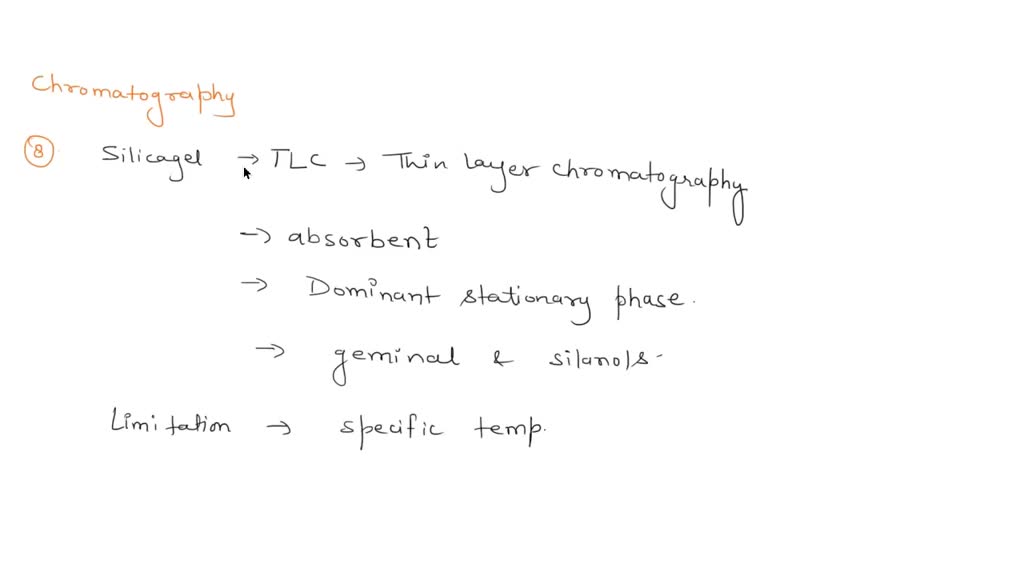 Chromatography
8 Silicagel → TLC → Thin layer chromatography
→ absorbent
→ Dominant stationary phase.
→ geminal & silanols.
Limitation → specific temp.